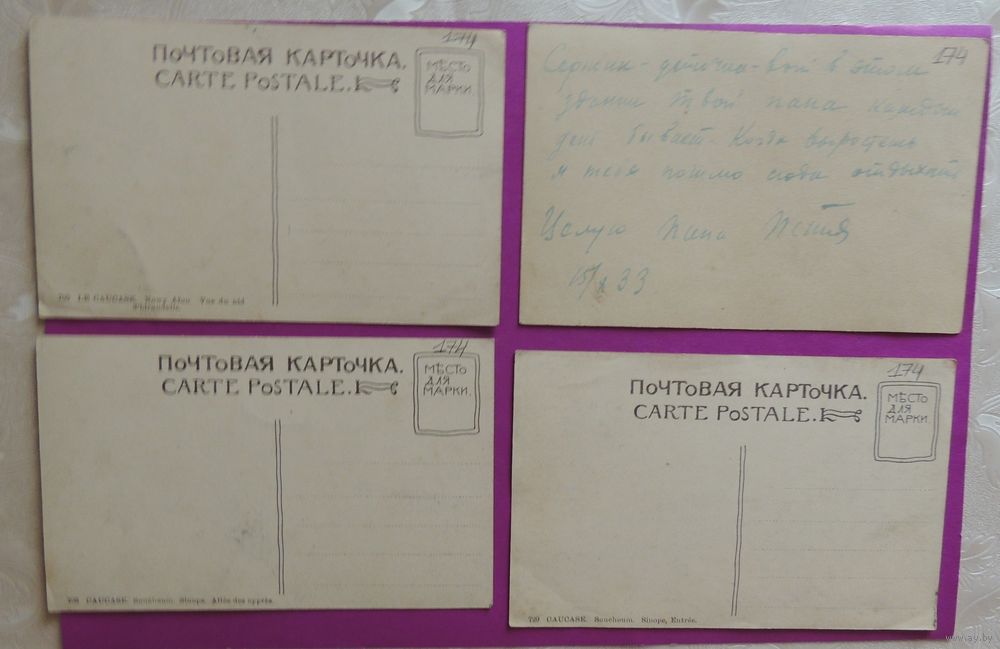 174
ПОЧТОВАЯ КАРТОЧКА.
CARTE POSTALE.
МѢСТО
ДЛЯ
МАРКИ.
LE CAUCASE. Vue du nid
174
вот в этом
здании твой папа каждый
день бывает. Когда выростешь
я тебя сюда отдыхать
Целую папа
15/X 33
174
ПОЧТОВАЯ КАРТОЧКА.
CARTE POSTALE.
МѢСТО
ДЛЯ
МАРКИ.
CAUCASE. Souchoum. Sinope. Allée des cyprès.
174
ПОЧТОВАЯ КАРТОЧКА.
CARTE POSTALE.
МѢСТО
ДЛЯ
МАРКИ.
729 CAUCASE. Souchoum. Sinope, Entrée.
www.ay.by